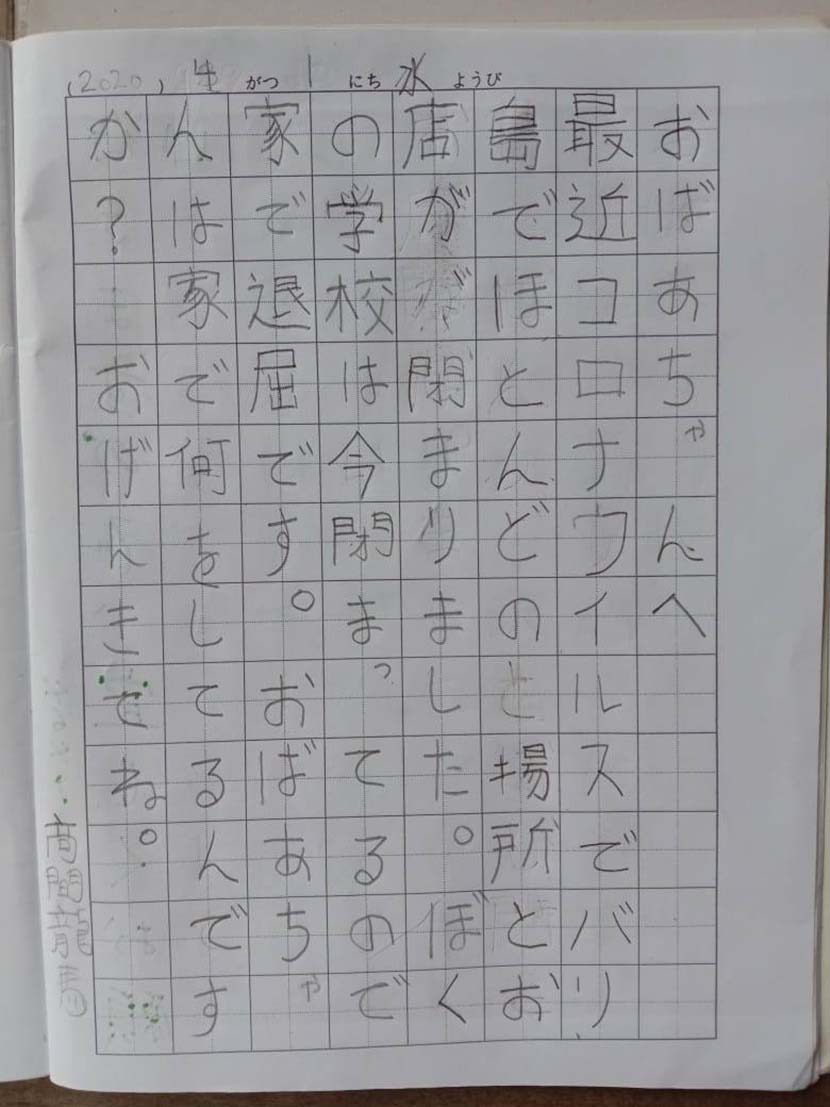 (2020) 4 がつ 1 にち 水 ようび
おばあちゃんへ
最近コロナウイルスでバリ
島でほとんどの場所とお
店が閉まりました。ぼく
の学校は今閉まってあるので
家で退屈です。おばあちゃ
んは家で何をしてるんです
か?おげんきでね。